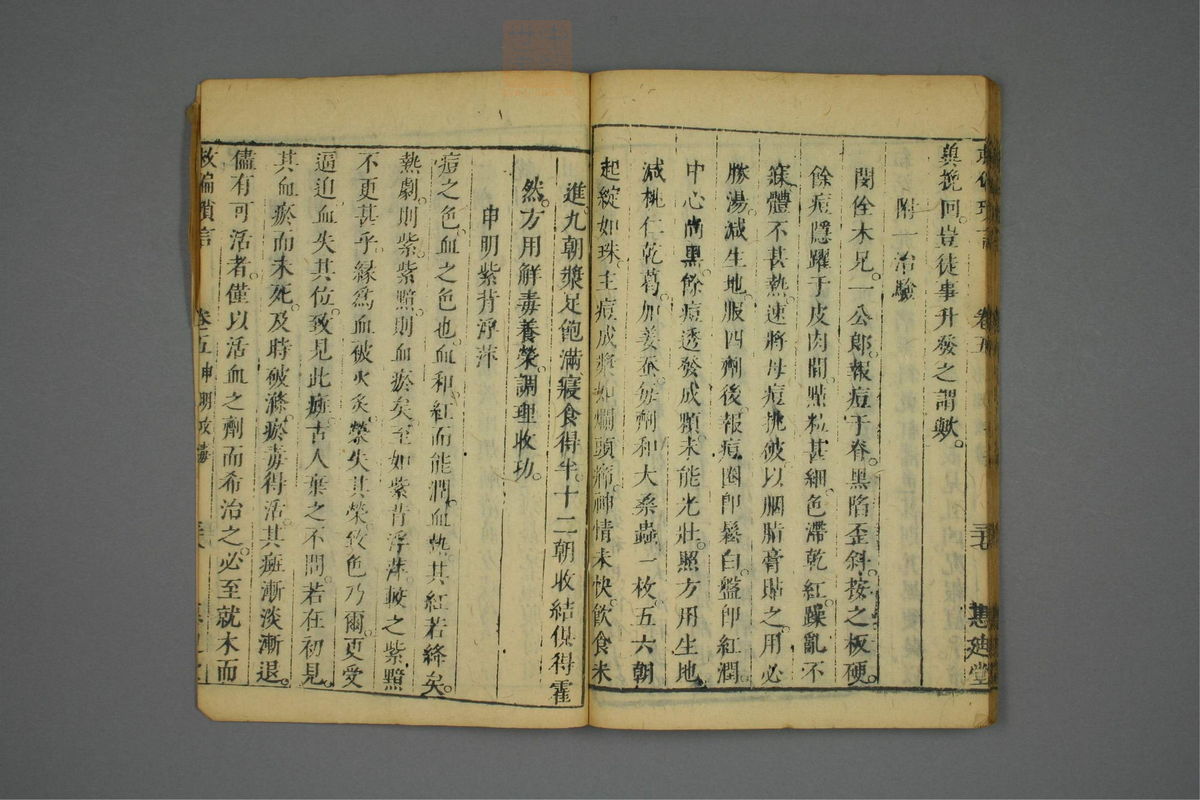 救偏瑣言 卷五 三七 惠迪堂
冀挽回豈徒事升發之謂歟。
附一治驗
閔佺木兄。一公郎。報痘于脊。黑陷歪斜。按之板硬。
餘痘隱躍于皮肉間。點粒甚細。色滯乾紅。躁亂不
寐。體不甚熱。速將母痘挑破。以胭脂膏貼之。用必
勝湯。減生地。服四劑後。報痘圈即鬆白。盤即紅潤。
中心尚黑。餘痘透發成顆。未能光壯。照方用生地。
減桃仁乾葛。加姜蚕。每劑和大桑蟲一枚。五六朝
起綻如珠。主痘成漿如爛頭癤。神情未快。飲食未
進。九朝漿足飽滿寢食得半。十二朝收結俱得霍
然。方用解毒養榮。調理收功。
申明紫背浮萍
痘之色。血之色也。血和紅而能潤。血熱。其紅若絳矣。
熱劇。則紫。紫黯。則血瘀矣。至如紫背浮萍。較之紫黯
不更甚乎。緣為血被火炙。榮失其榮。致色乃爾。更受
逼迫。血失其位。致見此斑。古人棄之不問。若在初見。
其血瘀而未死。及時破滌。瘀毒得活。其斑漸淡漸退。
儘有可活者。僅以活血之劑而希治之。必至就木而
救偏瑣言 卷之五 申明放毒 三八